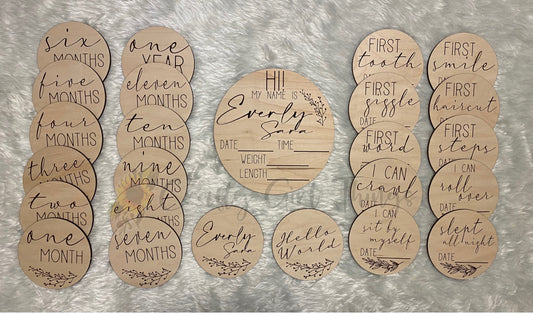 six
MONTHS
five
MONTHS
four
MONTHS
three
MONTHS
two
MONTHS
one
MONTH
one
YEAR
eleven
MONTHS
ten
MONTHS
nine
MONTHS
eight
MONTHS
seven
MONTHS
HI!
MY NAME IS
Everly
Sara
DATE TIME
WEIGHT
LENGTH
Everly
Sara
Hello
World
FIRST
tooth
DATE
FIRST
giggle
DATE
FIRST
word
DATE
I CAN
crawl
DATE
I CAN
sit by
myself
DATE
FIRST
smile
DATE
FIRST
haircut
DATE
FIRST
steps
DATE
I CAN
roll
over
DATE
slept
all night
DATE